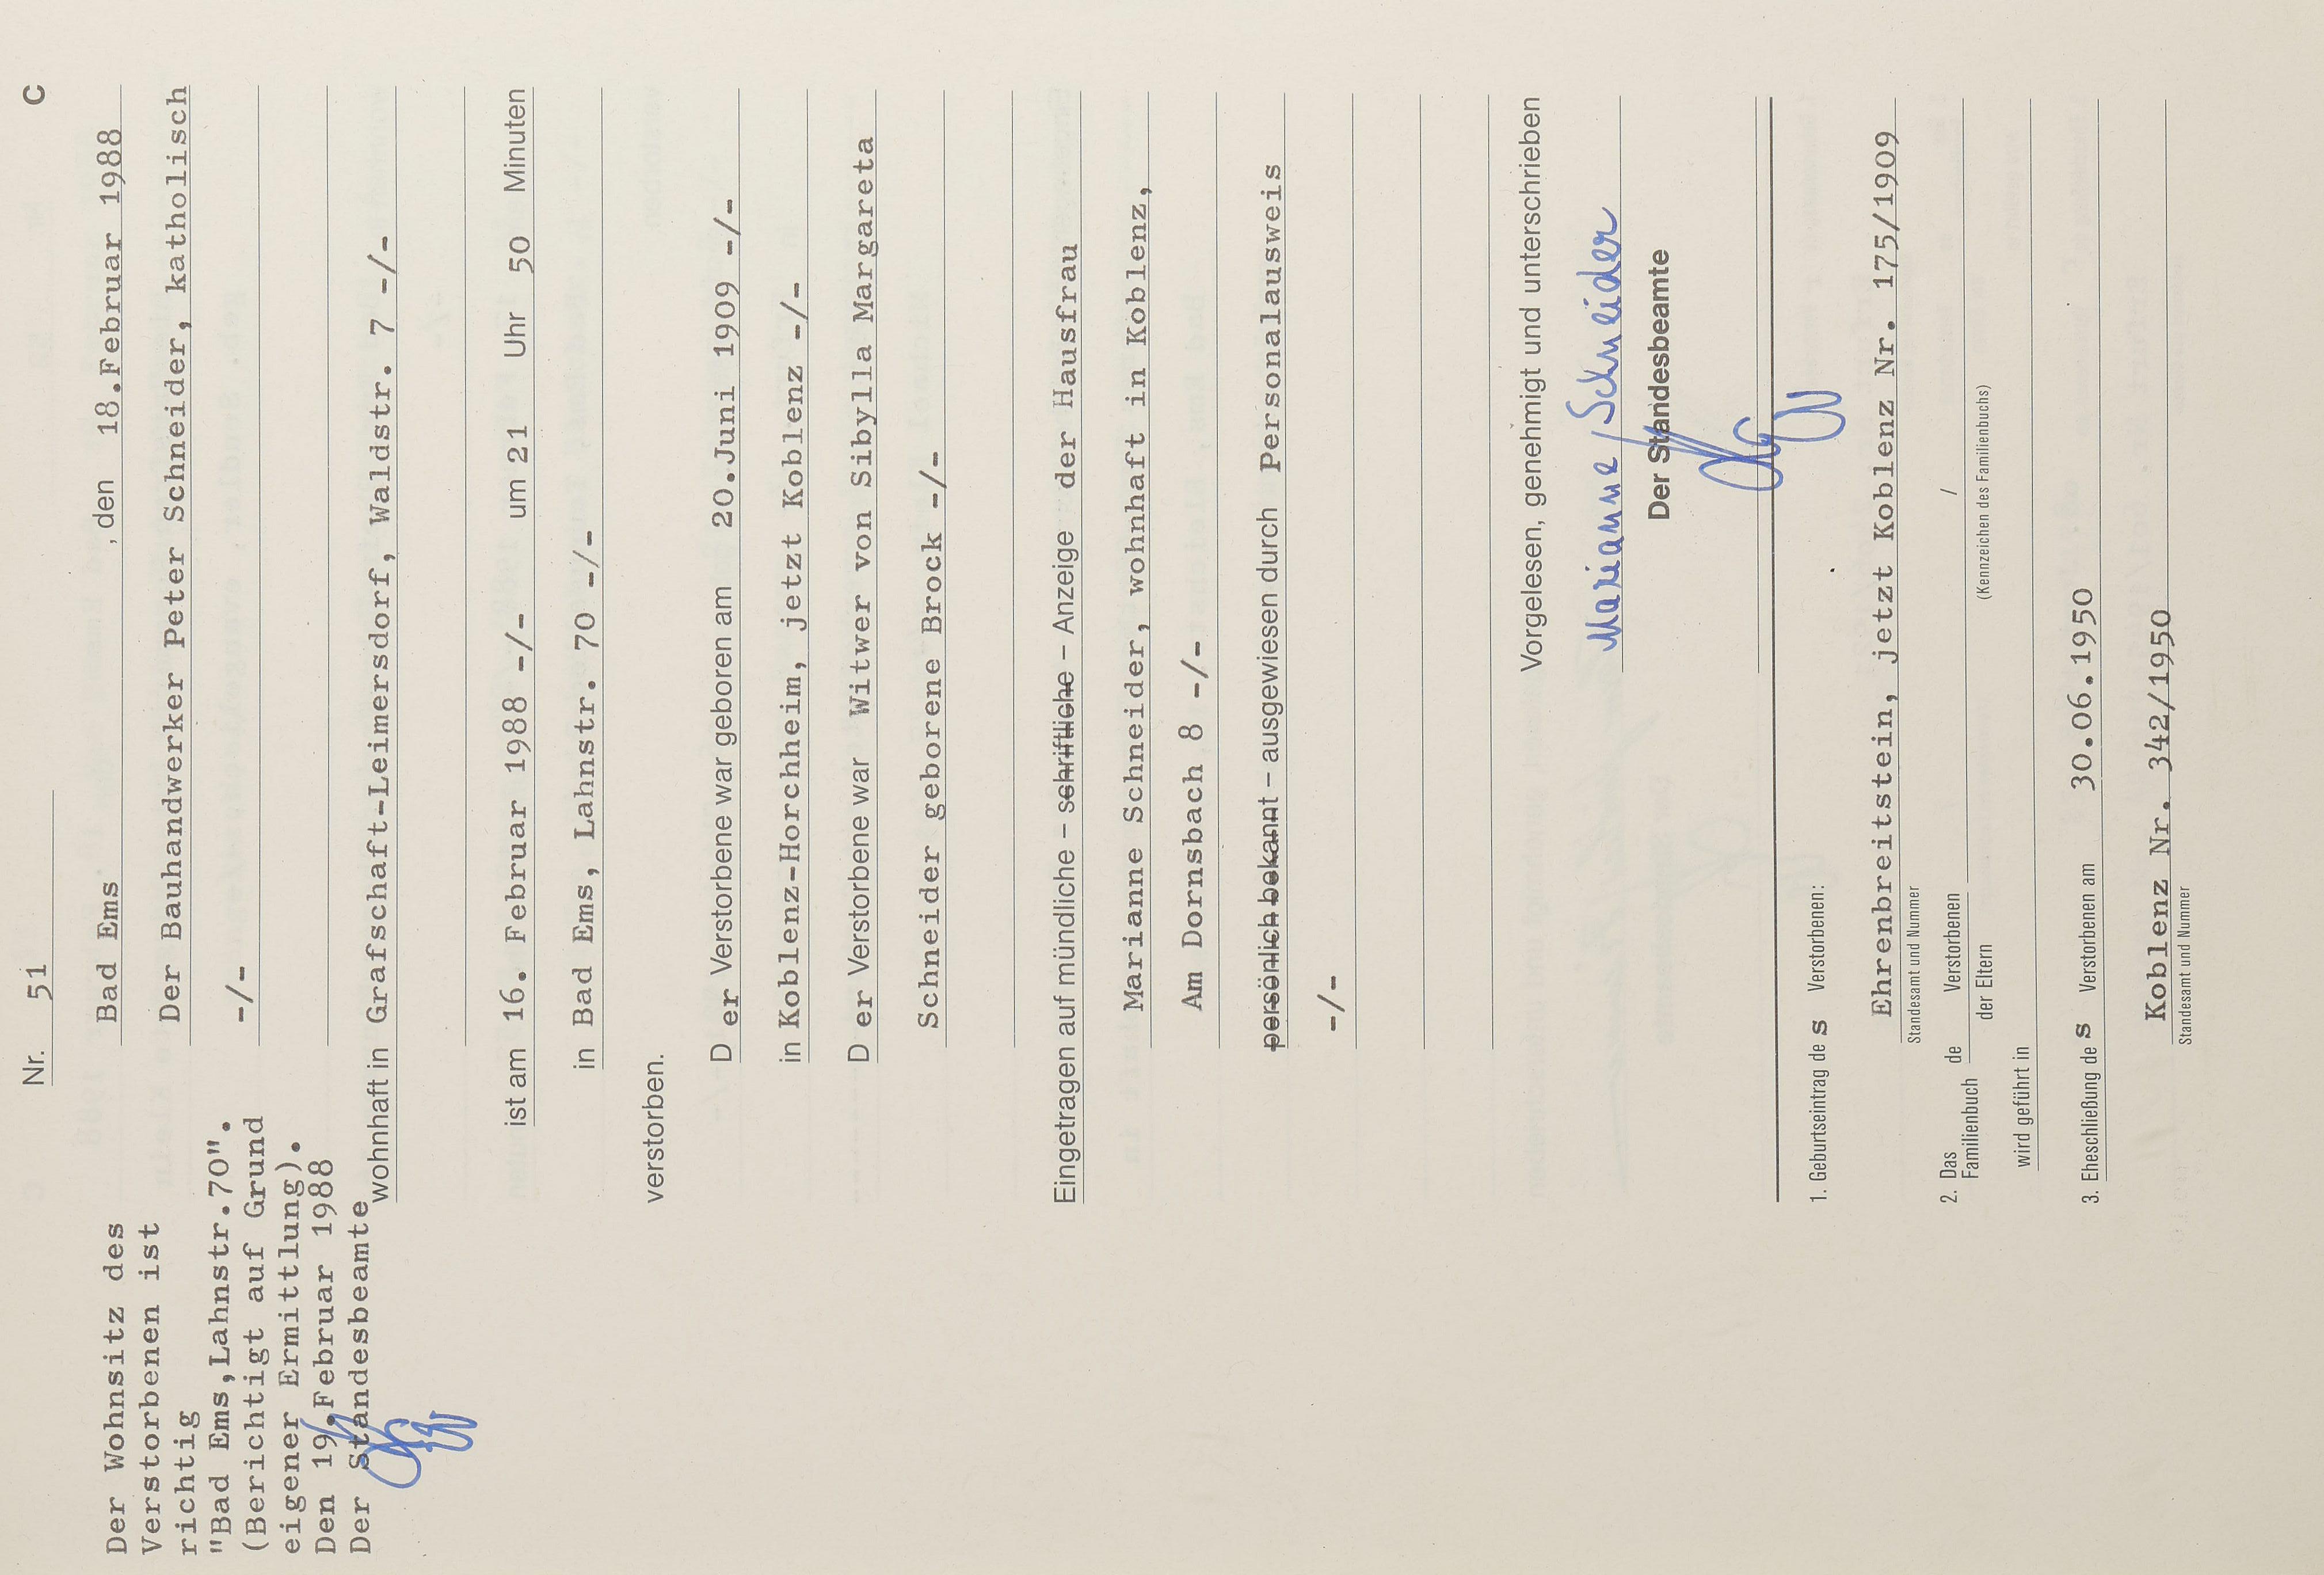 Nr. 51 C
Bad Ems , den 18.Februar 1988
Der Bauhandwerker Peter Schneider, katholisch
-/-
wohnhaft in Grafschaft-Leimersdorf, Waldstr. 7 -/-
ist am 16. Februar 1988 -/- um 21 Uhr 50 Minuten
in Bad Ems, Lahnstr. 70 -/-
verstorben.
D er Verstorbene war geboren am 20.Juni 1909 -/-
in Koblenz-Horchheim, jetzt Koblenz -/-
D er Verstorbene war Witwer von Sibylla Margareta
Schneider geborene Brock -/-
Eingetragen auf mündliche – schriftliche – Anzeige der Hausfrau
Marianne Schneider, wohnhaft in Koblenz,
Am Dornsbach 8 -/-
persönlich bekannt – ausgewiesen durch Personalausweis
-/-
Vorgelesen, genehmigt und unterschrieben
Marianne Schneider
Der Standesbeamte
1. Geburtseintrag de s Verstorbenen:
Ehrenbreitstein, jetzt Koblenz Nr. 175/1909
Standesamt und Nummer
2. Das Familienbuch de Verstorbenen /
der Eltern
(Kennzeichen des Familienbuchs)
wird geführt in
3. Eheschließung de s Verstorbenen am 30.06.1950
Koblenz Nr. 342/1950
Standesamt und Nummer
Der Wohnsitz des
Verstorbenen ist
richtig
"Bad Ems,Lahnstr.70".
(Berichtigt auf Grund
eigener Ermittlung).
Den 19.Februar 1988
Der Standesbeamte